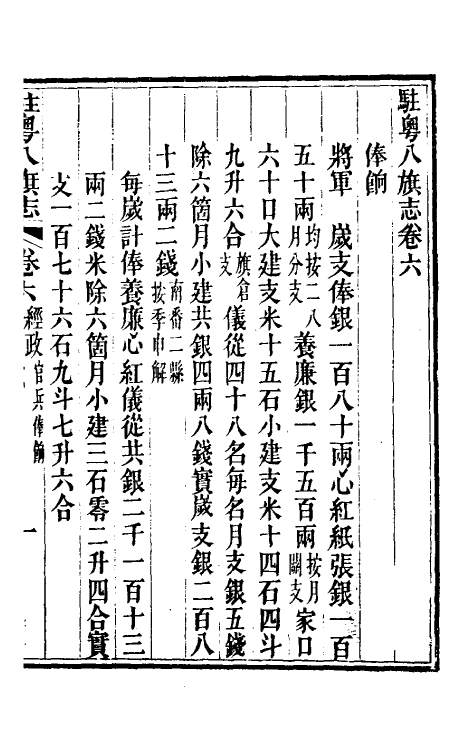 駐粵八旗志卷六
俸餉
將軍　歲支俸銀一百八十兩心紅紙張銀一百
五十兩均按二八月分支養廉銀一千五百兩按月關支家口
六十口大建支米十五石小建支米十四石四斗
九升六合旗倉支儀從四十八名每名月支銀五錢
除六箇月小建共銀四兩八錢實歲支銀二百八
十三兩二錢南番二縣按季申解
每歲計俸養廉心紅儀從共銀二千一百十三
兩二錢米除六箇月小建三石零二升四合實
支一百七十六石九斗七升六合
駐粵八旗志　卷六　經政　官兵俸餉　一